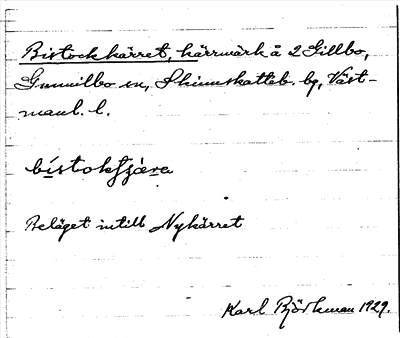 Bistockkärret, kärrmark å 2 Gillbo,
Gunnilbo sn, Skinnskatteb. bg, Väst-
manl. l.
bístokſjæra
Beläget intill Nykärret
Karl Björkman 1929.